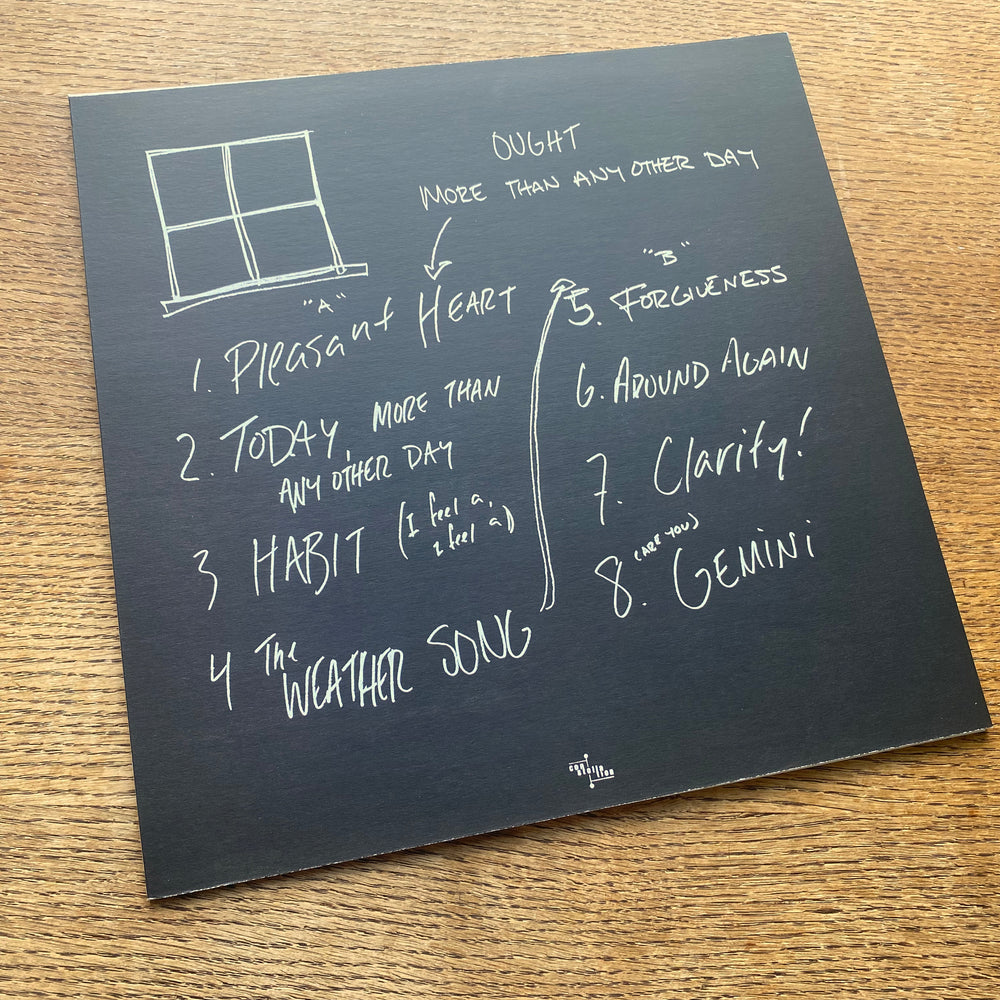 OUGHT
MORE THAN ANY OTHER DAY
"A"
1. Pleasant HEART
2. TODAY, MORE THAN
ANY OTHER DAY
3 HABIT (I feel a,
I feel a)
4 The
WEATHER SONG
"B"
5. FORGIVENESS
6. AROUND AGAIN
7. Clarity!
(ARE YOU)
8. GEMINI
con
stella
tion